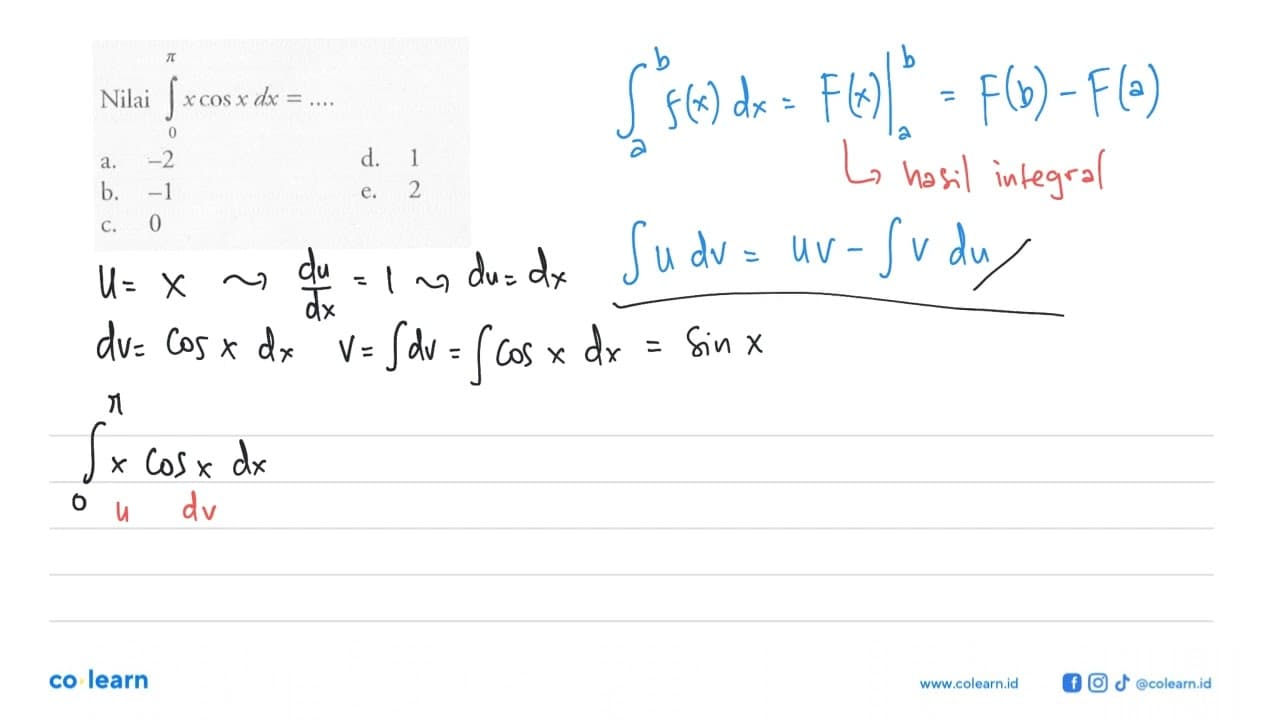 Nilai ∫₀^π x cos x dx = ....
a. –2 d. 1
b. –1 e. 2
c. 0
∫ₐᵇ f(x) dx = F(x)|ₐᵇ = F(b) – F(a)
↳ hasil integral
∫ u dv = uv – ∫ v du
u = x ⇝ du/dx = 1 ⇝ du = dx
dv = cos x dx v = ∫ dv = ∫ cos x dx = sin x
∫₀^π x cos x dx
u dv
co learn
www.colearn.id
@colearn.id